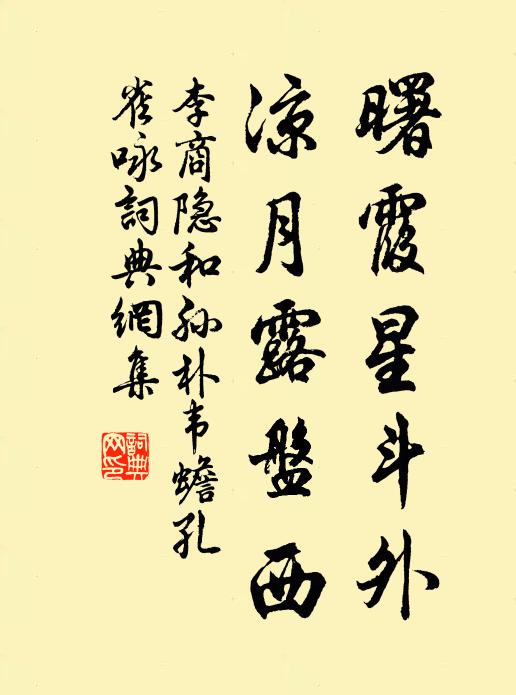 曙霞星斗外
凉月露盤西
李商隐和孙朴韦蟾孔
雀咏詞典網集
詞典
网印